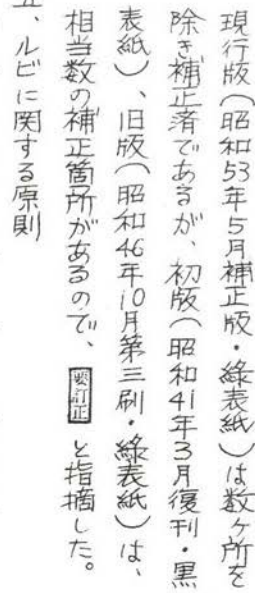 現行版(昭和53年5月補正版・緑表紙)は数ヶ所を
除き補正済であるが、初版(昭和41年3月復刊・黒
表紙)、旧版(昭和46年10月第三刷・緑表紙)は、
相当数の補正箇所があるので、要訂正と指摘した。
、ルビに関する原則